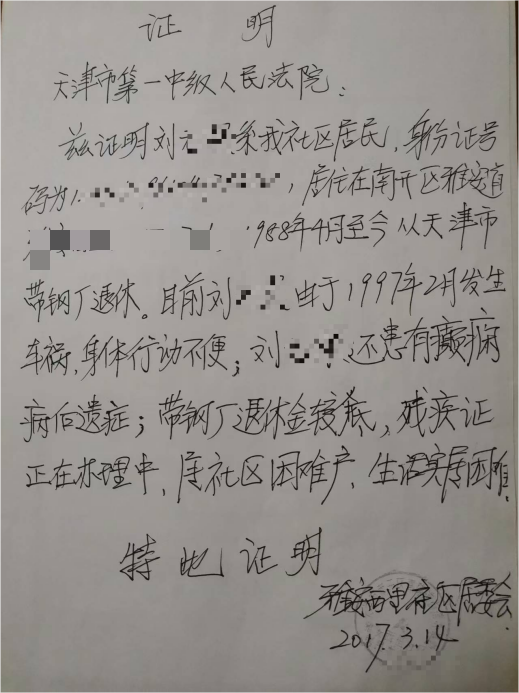 证 明
天津市第一中级人民法院：
兹证明刘 系我社区居民，身份证号
码为1 ，居住在南开区雅安道
1988年4月至今从天津市
带钢厂退休。目前刘 由于1997年2月发生
车祸，身体行动不便；刘 还患有癫痫
病后遗症；带钢厂退休金较低，残疾证
正在办理中，属社区困难户，生活实属困难
特此证明
雅安西里社区居委会
2017.3.14